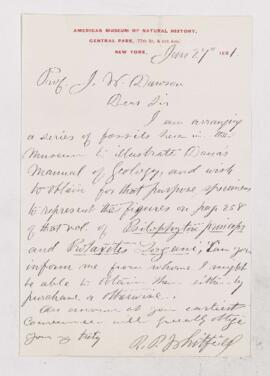 AMERICAN MUSEUM OF NATURAL HISTORY,
CENTRAL PARK, 77th St. & 8th Ave.
NEW YORK, Jan 27th 1881
Prof J. W. Dawson
Dear Sir
I am arranging
a series of fossils here in the
Museum to illustrate Dana's
Manual of Geology, and wish
to obtain for that purpose specimens
to represent the figures on page 258
of that vol. of Psilophyton princeps
and Prototaxites Logani. Can you
inform me from whom I might
be able to obtain them either by
purchase or otherwise.
An answer at your earliest
convenience will greatly oblige
Yours truly
R. P. Whitfield